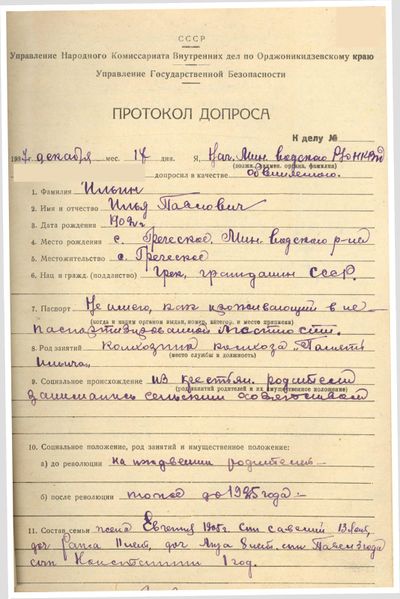 СССР
Управление Народного Комиссариата Внутренних дел по Орджоникидзевскому краю
Управление Государственной Безопасности
ПРОТОКОЛ ДОПРОСА
К делу №
1937 декабря мес. 17 дня. Я, Нач. Мин. водского РО НКВД
(должн., наимен. органа, фамилия)
допросил в качестве обвиняемого.
1. Фамилия Ильин
2. Имя и отчество Илья Павлович
3. Дата рождения 1902 г.
4. Место рождения с. Греческое Мин. водского р-на
5. Местожительство с. Греческое
6. Нац и гражд. (подданство) Грек, гражданин СССР.
7. Паспорт Не имею, как проживающий в не-
(когда и каким органом выдан, номер, категор. и место приписки)
паспортизированной местности.
8. Род занятий Колхозник колхоза „Память
(место службы и должность)
Ильича„
9. Социальное происхождение из крестьян, родители
(род занятий родителей и их имущественное положение)
занимались сельским хозяйством
10. Социальное положение, род занятий и имущественное положение:
а) до революции на иждивении родителей
б) после революции тоже до 1925 года
11. Состав семьи жена Евгения 1905 г. сын Савелий 13 лет,
доч 11 лет, доч 8 лет. сын Павел 3 года
сын Константин 1 год.